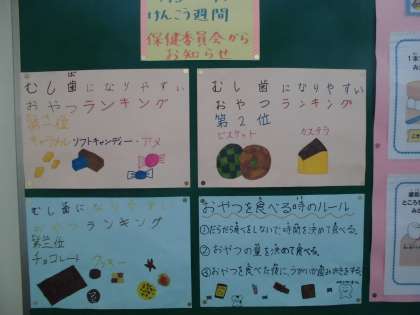 けんこう週間
保健委員会から
お知らせ
むし歯になりやすい
おやつランキング
第一位
キャラメル・ソフトキャンディー・アメ
むし歯になりやすい
おやつランキング
第2位
ビスケット
カステラ
むし歯になりやすい
おやつランキング
第三位
チョコレート
クッキー
おやつを食べる時のルール
①だらだら食べをしないで、時間を決めて食べる。
②おやつの量を決めて食べる。
③おやつを食べた後に、うがいか歯みがきをする。